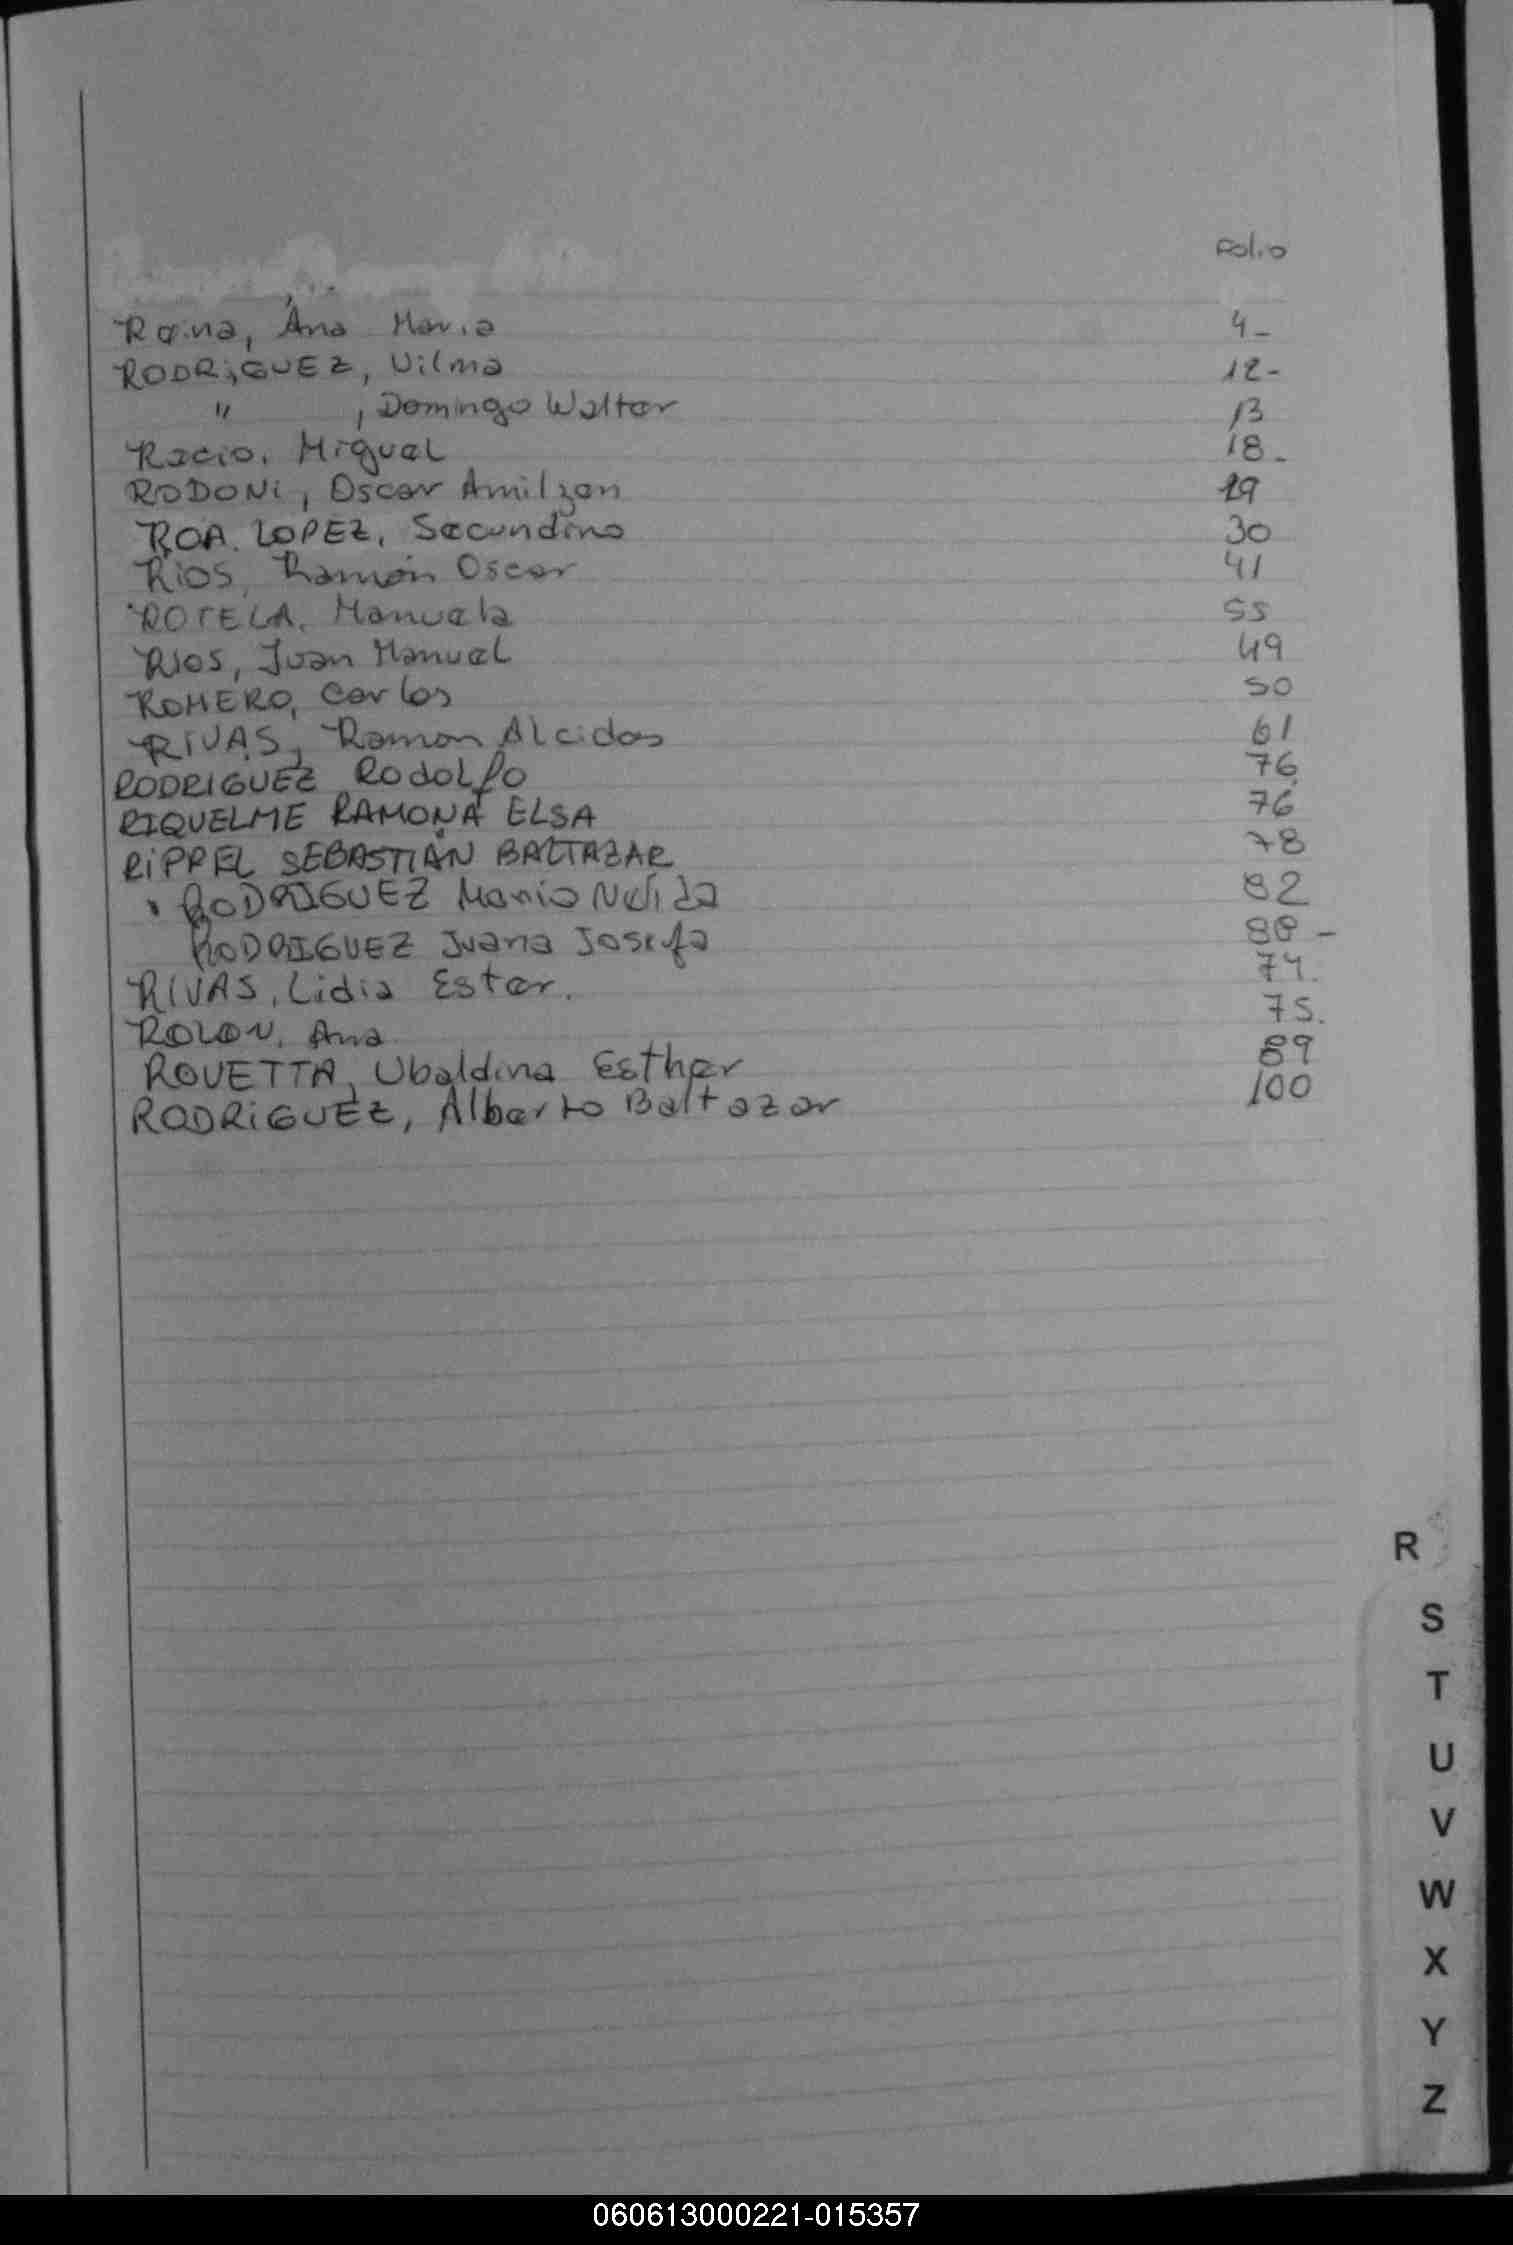 Folio
Reina, Ana Maria 4-
RODRiGUEZ, Vilma 12-
" , Domingo Walter 13
Recio, Miguel 18-
RODONi, Oscar Amilzen 29
ROA LOPEZ, Secundino 30
Rios, Ramón Oscar 41
ROTELA, Manuela 55
Rios, Juan Manuel 49
ROMERO, Carlos 50
RIVAS, Ramon Alcides 61
RODRIGUEZ Rodolfo 76
RIQUELME RAMONA ELSA 76
RiPPEL SEBASTIÁN BALTAZAR 78
RODRIGUEZ Maria Nelida 82
RODRIGUEZ Juana Josefa 88-
RIVAS, Lidia Ester. 74.
ROLON, Ana 75.
ROVETTA, Ubaldina Esther 89
RODRiGUEZ, Alberto Baltazar 100
R
S
T
U
V
W
X
Y
Z
060613000221-015357